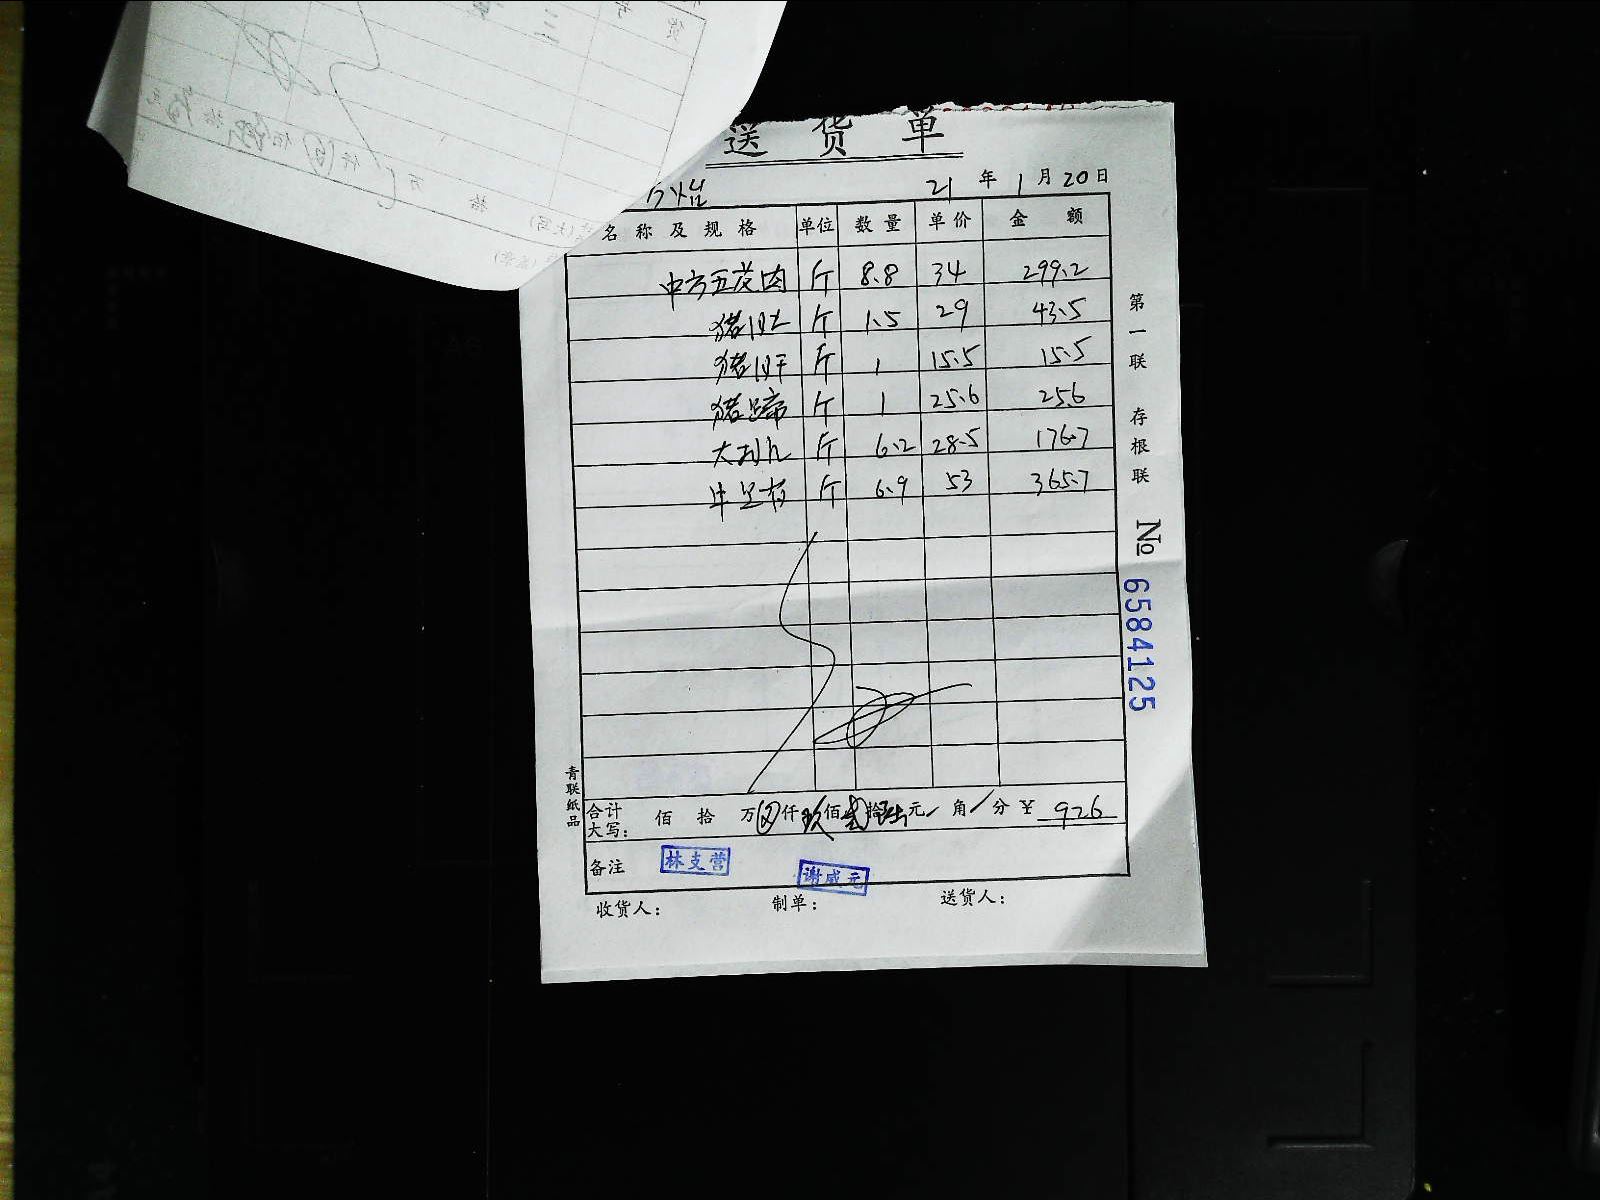 送 货 单
21 年 1 月 20 日
名 称 及 规 格 单位 数 量 单 价 金 额
中方五花肉 斤 8.8 34 299.2
猪肚 斤 1.5 29 43.5
猪肝 斤 1 15.5 15.5
猪蹄 斤 1 25.6 25.6
斤 6.2 28.5 176.7
斤 6.9 53 365.7
合计大写: 佰 拾 万 仟 玖 佰 拾 陆 元 / 角 / 分 ¥ 926
备注 林支营 谢威元
收货人: 制单: 送货人:
第一联 存根联
№ 6584125
青联纸品